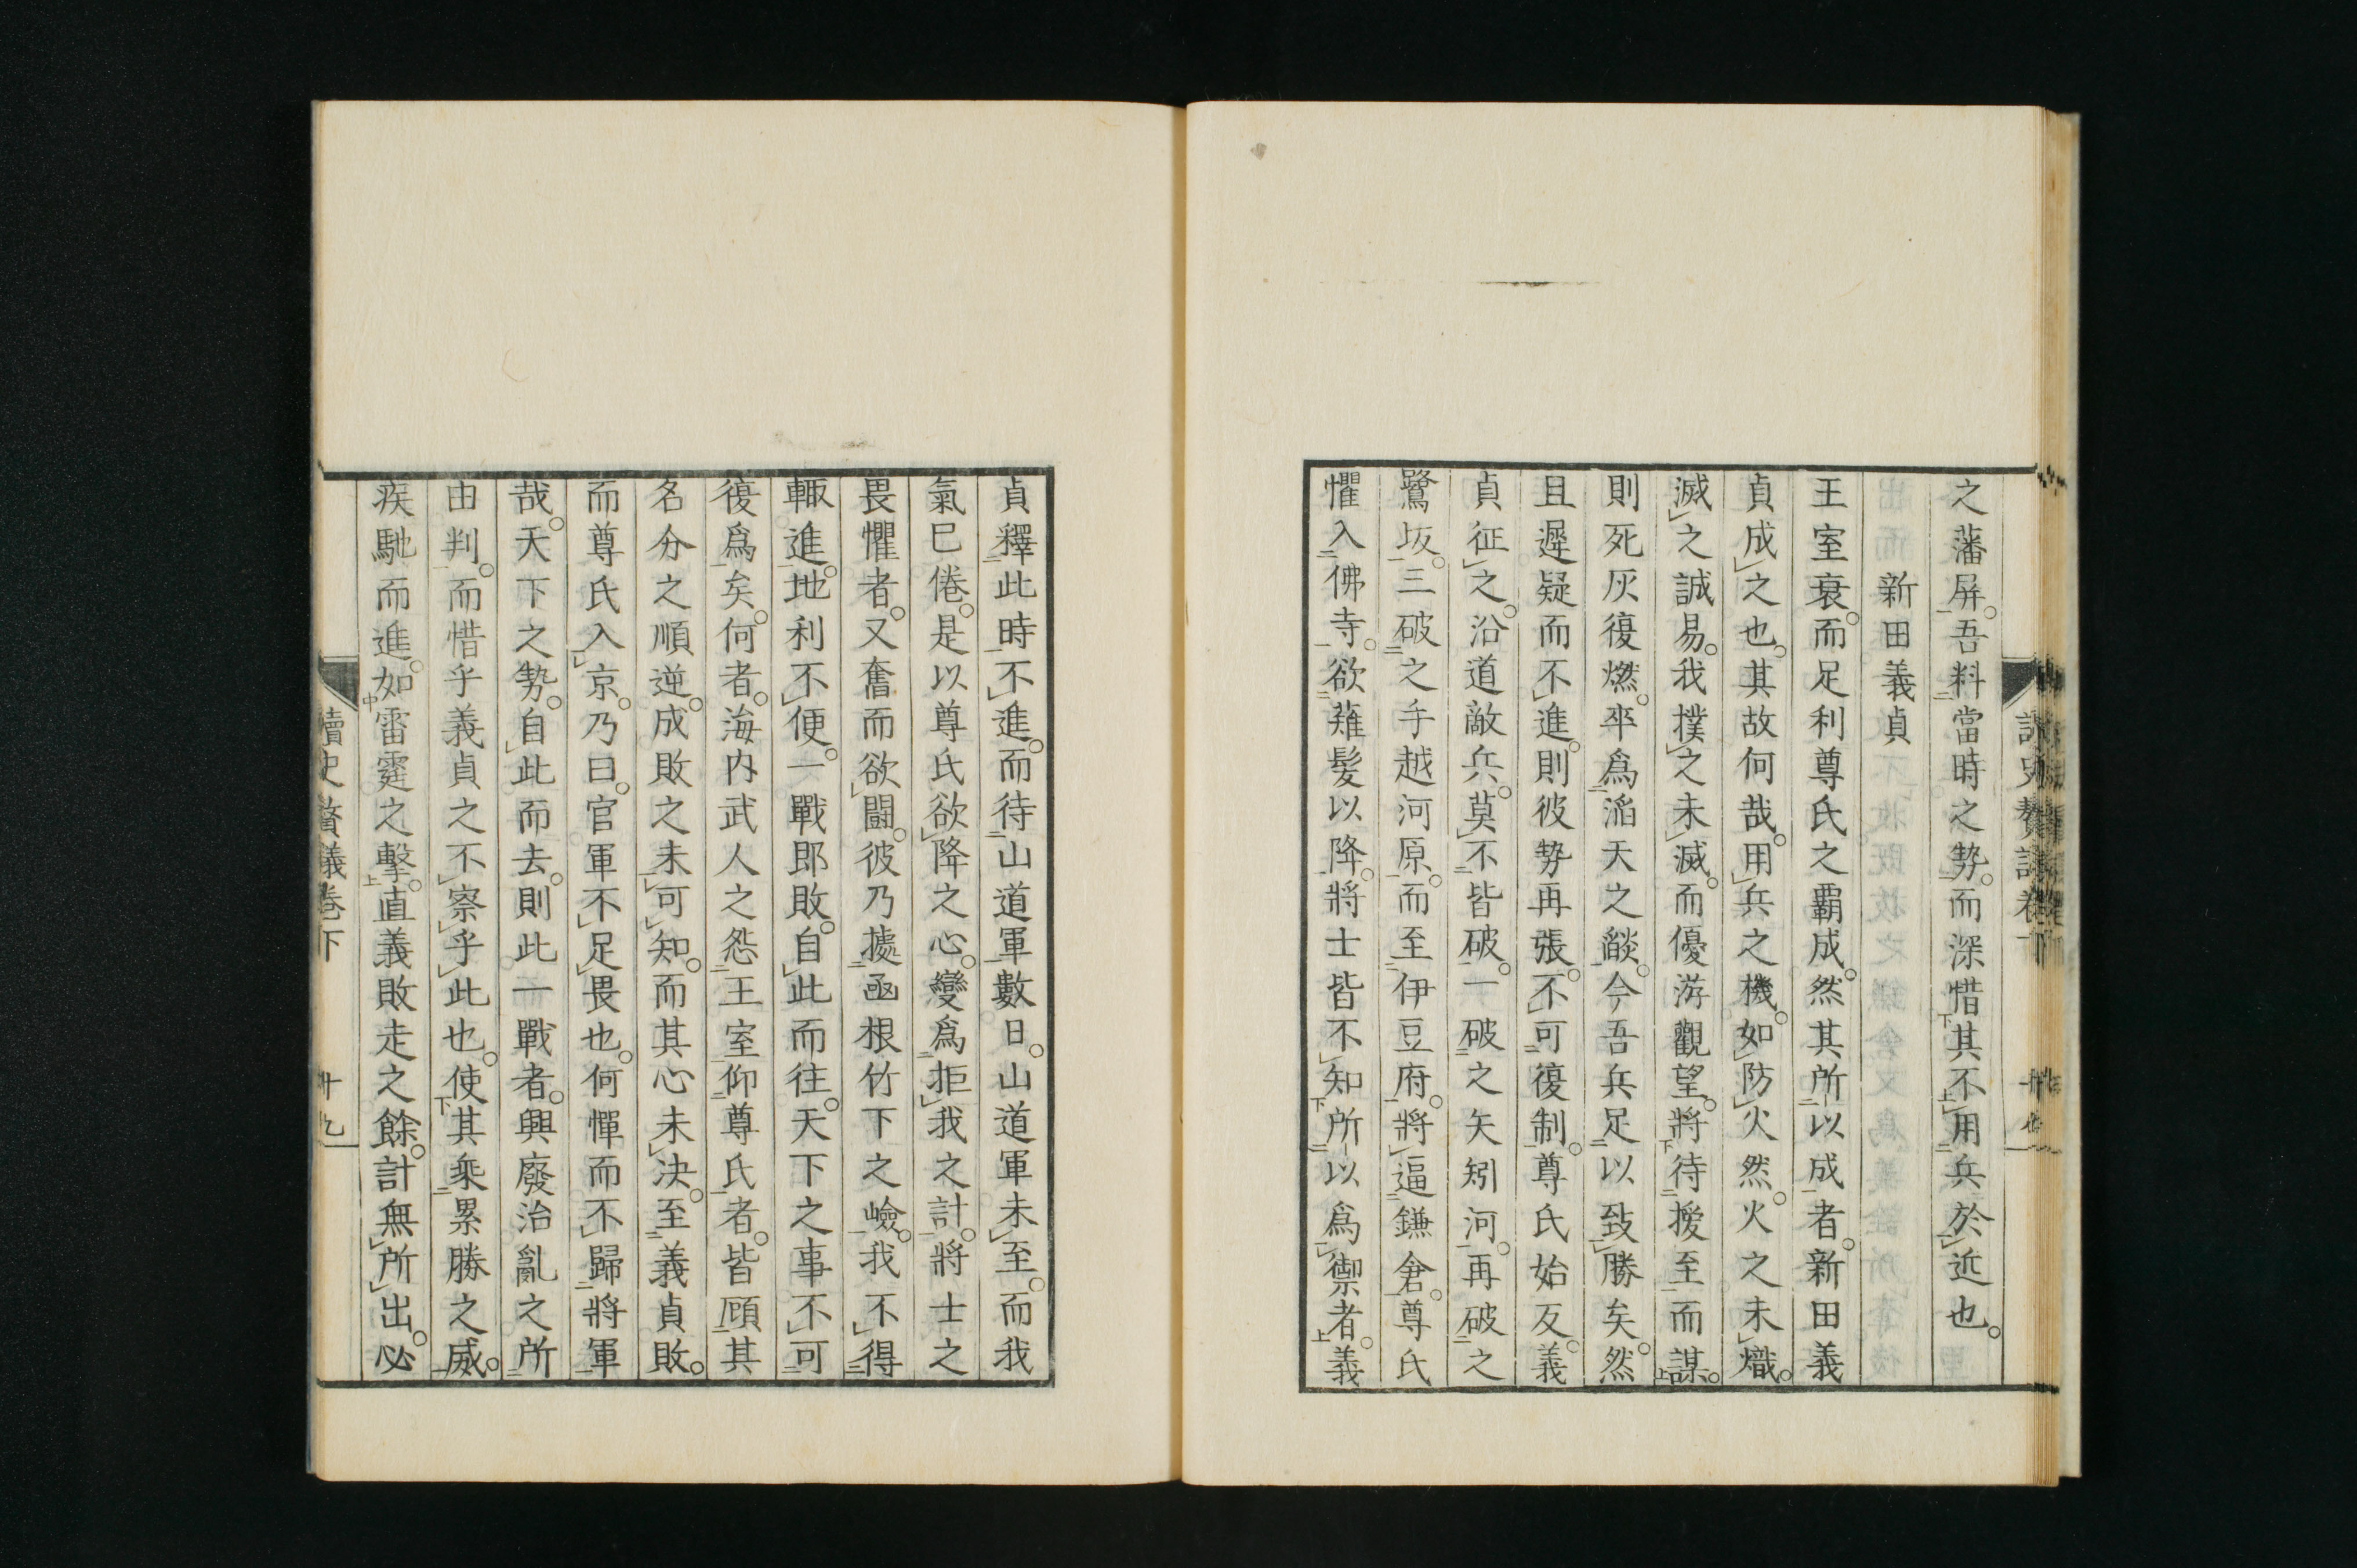 之藩屏。吾料當時之勢。而深惜其不用兵於近也。
新田義貞
王室衰。而足利尊氏之覇成。然其所以成者。新田義
貞成之也。其故何哉。用兵之機。如防火然。火之未熾。
滅之誠易。我撲之未滅。而優游觀望。將待援至而謀。
則死灰復燃。卒爲滔天之燄。今吾兵足以致勝矣。然
且遲疑而不進。則彼勢再張。不可復制。尊氏始反。義
貞征之。沿道敵兵。莫不皆破。一破之矢矧河。再破之
鷺坂。三破之手越河原。而至伊豆府。將逼鎌倉。尊氏
懼入佛寺。欲薙髮以降。將士皆不知所以爲禦者。義
貞釋此時不進。而待山道軍數日。山道軍未至。而我
氣已倦。是以尊氏欲降之心。變爲拒我之計。將士之
畏懼者。又奮而欲鬪。彼乃據凾根竹下之嶮。我不得
輙進。地利不便。一戰即敗。自此而往。天下之事不可
復爲矣。何者。海内武人之怨王室仰尊氏者。皆顧其
名分之順逆。成敗之未可知。而其心未决。至義貞敗。
而尊氏入京。乃曰。官軍不足畏也。何憚而不歸將軍
哉。天下之勢。自此而去。則此一戰者。興廢治亂之所
由判。而惜乎義貞之不察乎此也。使其乘累勝之威。
疾馳而進。如雷霆之擊。直義敗走之餘。計無所出。必
讀史贅議卷下
十九